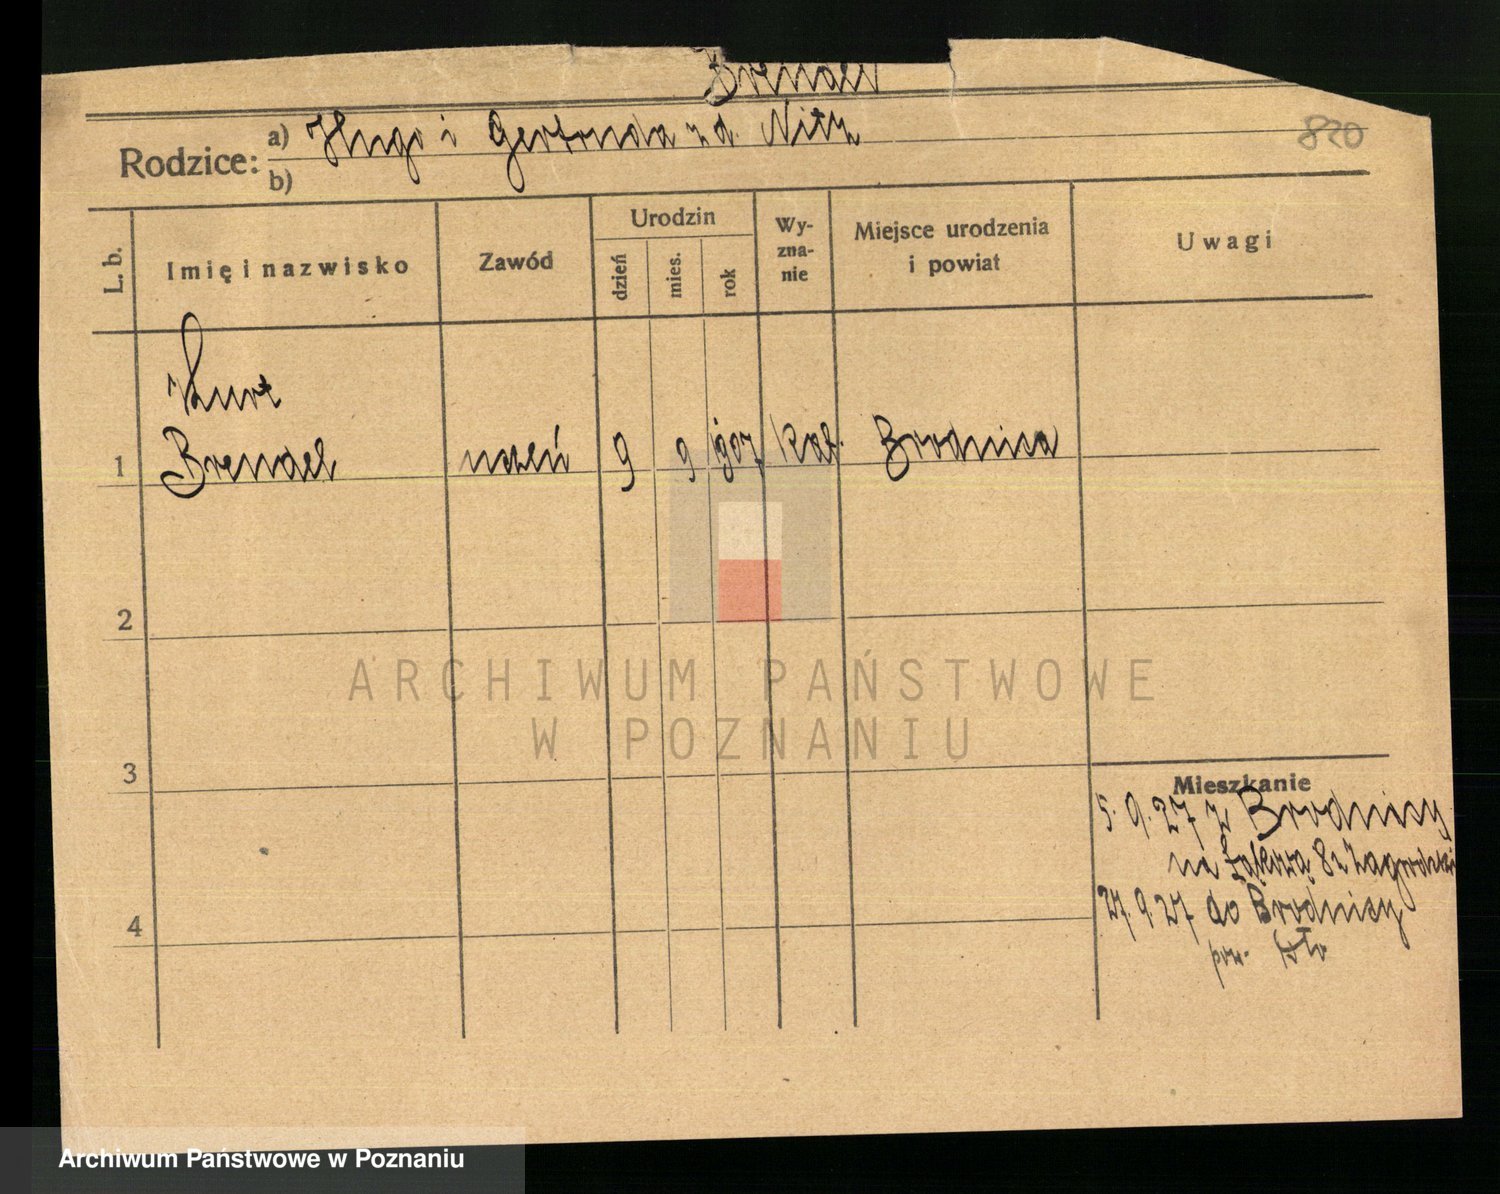 Brendel
820
Rodzice: a) Hugo i Gertruda z d. Nitz
b)
L. b. Imię i nazwisko Zawód Urodzin dzień mies. rok Wyznanie Miejsce urodzenia i powiat Uwagi
Kurt
1 Brendel uczeń 9 9 907 kat. Brodnica
2
3
4
Mieszkanie
5. 9. 27 z Brodnicy
na Łąkową 8
27. 9. 27 do Brodnicy
ARCHIWUM PAŃSTWOWE
W POZNANIU
Archiwum Państwowe w Poznaniu